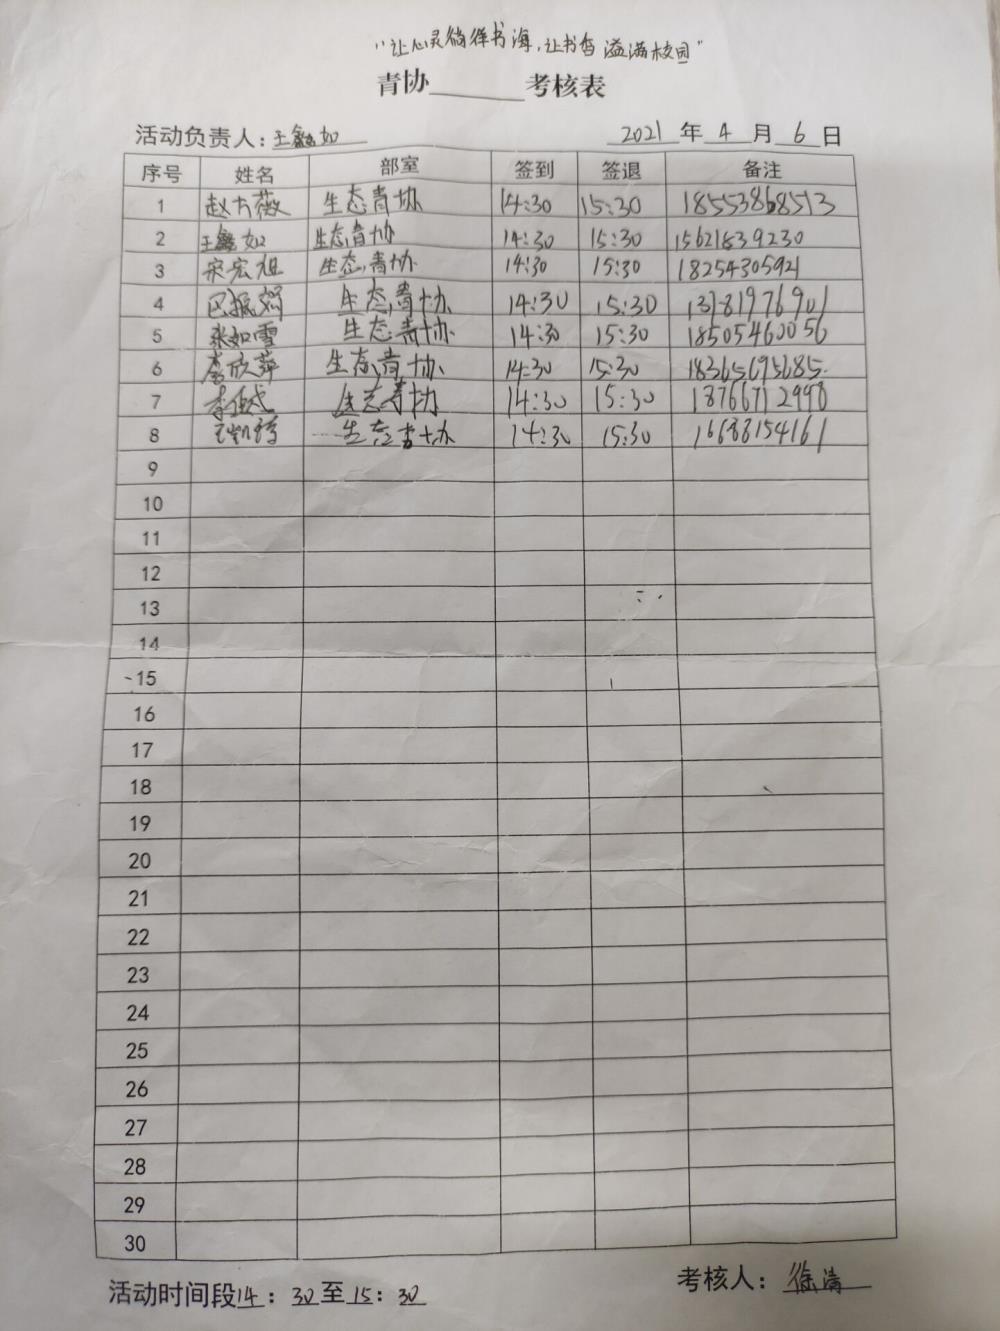 "让心灵徜徉书海,让书香溢满校园"
青协______考核表
活动负责人:王鑫如 2021 年 4 月 6 日
序号 姓名 部室 签到 签退 备注
1 赵大薇 生态青协 14:30 15:30 18553868513
2 王鑫如 生态青协 14:30 15:30 15621839230
3 宋宏旭 生态青协 14:30 15:30 18254305921
4 巴振 生态青协 14:30 15:30 13181976901
5 张如雪 生态青协 14:30 15:30 18505460056
6 李欣萍 生态青协 14:30 15:30 18365695685
7 李佳 生态青协 14:30 15:30 18766712998
8 王凯 生态青协 14:30 15:30 16688154161
9
10
11
12
13
14
15
16
17
18
19
20
21
22
23
24
25
26
27
28
29
30
活动时间段14:30至15:30 考核人:徐清